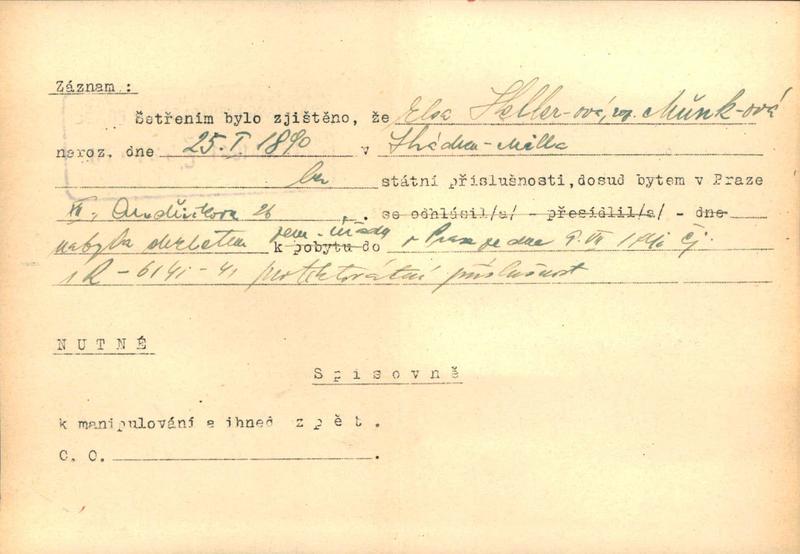 Záznam :
Šetřením bylo zjištěno, že Elsa Heller-ová, roz. Münk-ová
naroz. dne 25. I 1890 v
bez státní příslušnosti, dosud bytem v Praze
XII, 26 . se odhlásil/a/ - přesídlil/a/ - dne
nabyla dekretem zem. úřadu k pobytu do v Praze ze dne čj.
1 R - 6141 - 41 protektorátní příslušnost
NUTNÉ
Spisovně
k manipulování a ihned zpět.
C. O. .